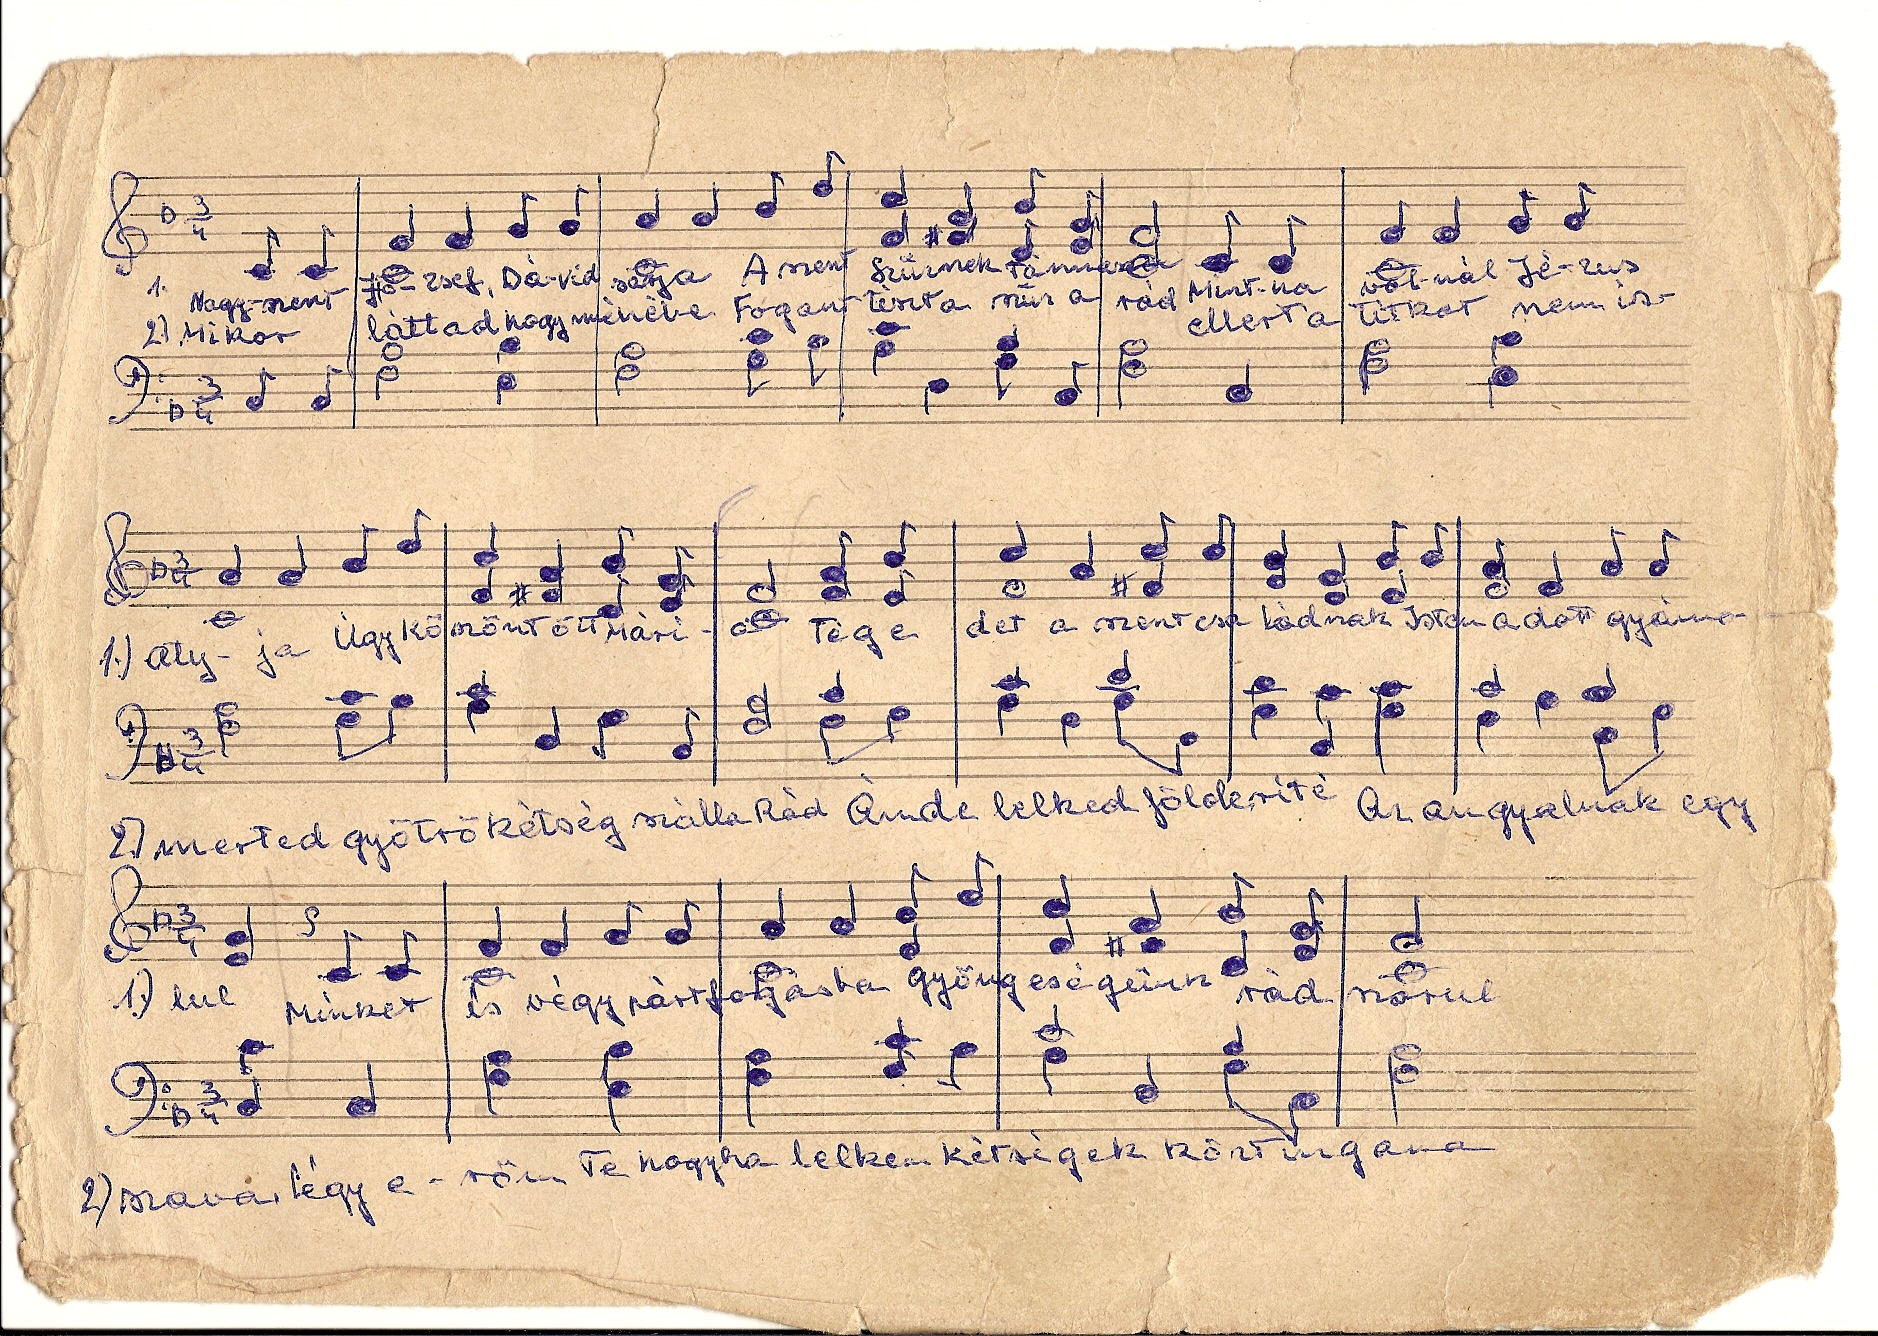 1. Nagy-szent Jó-zsef, Dá-vid sarja A szent Szűznek támasza Mint-ha vol-nál Jé-zus
2) Mikor láttad hogy méhébe Fogan tészta szűz a rád ellert a titkot nem is-
1.) aty- ja Úgy köszönt ött Mári- a Tége det a szent csa ládnak Isten adott gyámo-
2.) merted gyötrő kétség szálla Rád Ámde lelked földeríté Az angyalnak egy
1.) lul Minket is végy pártfogásba gyöngeségünk rád szorul
2) szava, légy e- röm Te hogyha lelkem kétségek közt ingana